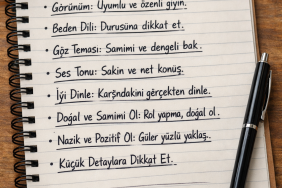 • Görünüm: Uyumlu ve özenli giyin.
• Beden Dili: Duruşuna dikkat et.
• Göz Teması: Samimi ve dengeli bak.
• Ses Tonu: Sakin ve net konuş.
• İyi Dinle: Karşındakini gerçekten dinle.
• Doğal ve Samimi Ol: Rol yapma, doğal ol.
• Nazik ve Pozitif Ol: Güler yüzlü yaklaş.
• Küçük Detaylara Dikkat Et.